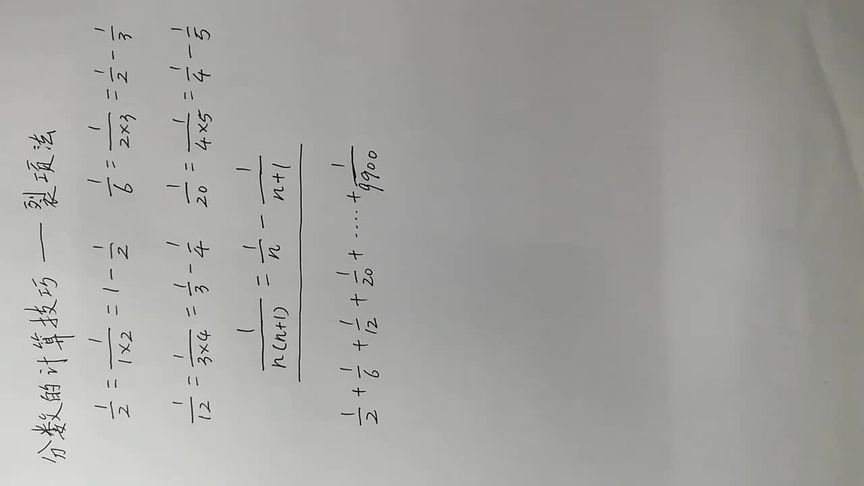 分数的计算技巧 — 裂项法
1/2 = 1/1×2 = 1 - 1/2 1/6 = 1/2×3 = 1/2 - 1/3
1/12 = 1/3×4 = 1/3 - 1/4 1/20 = 1/4×5 = 1/4 - 1/5
1/n(n+1) = 1/n - 1/n+1
1/2 + 1/6 + 1/12 + 1/20 + ····· + 1/9900